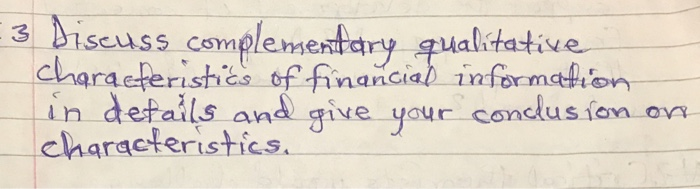 3 Discuss complementary qualitative
characteristics of financial information
in details and give your conclusion on
characteristics.